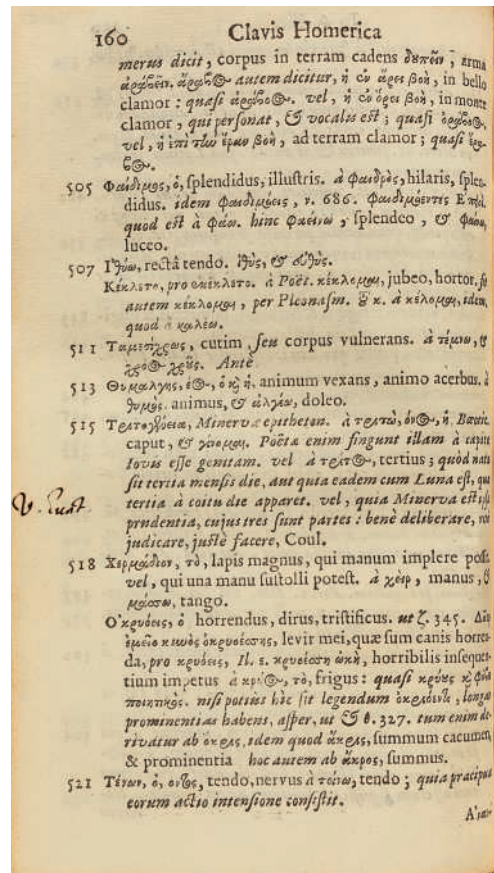 160 Clavis Homerica
merus dicit, corpus in terram cadens δουπεῖν, arma
ἀραβεῖν. ἄραβος autem dicitur, ἡ ἐν ἄρει βοὴ, in bello
clamor: quasi ἀρόβος. vel, ἡ ἐν ὄρει βοὴ, in monte
clamor, qui personat, & vocalis est; quasi ὀρόβος,
vel, ἡ ἐπὶ τὴν ἔραν βοὴ, ad terram clamor; quasi
505 Φαίδιμος, ὁ, splendidus, illustris. à φαιδρὸς, hilaris, splen-
didus. idem φαιδιμόεις, v. 686. φαιδιμόεντες Ἐπειοί.
quod est à φάω. hinc φαείνω, splendeo, & φαύω,
luceo.
507 Ἰθύω, rectâ tendo. ἰθὺς, & εὐθὺς.
Κέκλετο, pro ἐκέκλετο. à Poët. κέκλομαι, jubeo, hortor.
autem κέκλομαι, per Pleonasm. τοῦ κ. à κέλομαι, idem
quod à καλέω.
511 Ταμεσίχρως, cutim, seu corpus vulnerans. à τέμνω, &
χρὸς χρῦς. Ante
513 Θυμαλγὴς, έος, ὁ, κὶ ἡ. animum vexans, animo acerbus. à
θυμὸς. animus, & ἀλγέω, doleo.
515 Τριτογένεια, Minervæ epitheton. à τριτὼ, οῦς, ἡ, Bœotic.
caput, & γείνομαι. Poëtæ enim fingunt illam à capite
Iovis esse genitam. vel à τρίτος, tertius; quòd nata
sit tertia mensis die, aut quia eadem cum Luna est, quæ
tertia à coitu die apparet. vel, quia Minerva est ipsa
V. Eust.
prudentia, cujus tres sunt partes: benè deliberare,
judicare, justè facere, Coul.
518 Χερμάδιον, τὸ, lapis magnus, qui manum implere posst
vel, qui una manu sustolli potest. à χεὶρ, manus, &
μάσσω, tango.
Ὀκρυόεις, ὁ horrendus, dirus, tristificus. ut ζ. 345. Δᾶερ
ἐμεῖο κυνὸς ὀκρυοέσσης, levir mei, quæ sum canis horren-
da, pro κρυόεις, Il. ε. κρυόεσσα ἰωκὴ, horribilis insequen-
tium impetus à κρύος, τὸ, frigus: quasi κρύους κὶ φῦσα
ποιητικὸς. nisi potius hîc sit legendum ὀκριόεντι, longas
prominentias habens, asper, ut & θ. 327. tum enim de-
rivatur ab ὄκρις, idem quod ἄκρις, summum cacumen
& prominentia hoc autem ab ἄκρος, summus.
521 Τένων, ὁ, οντος, tendo, nervus à τείνω, tendo; quia præcipua
eorum actio intensione consistit.